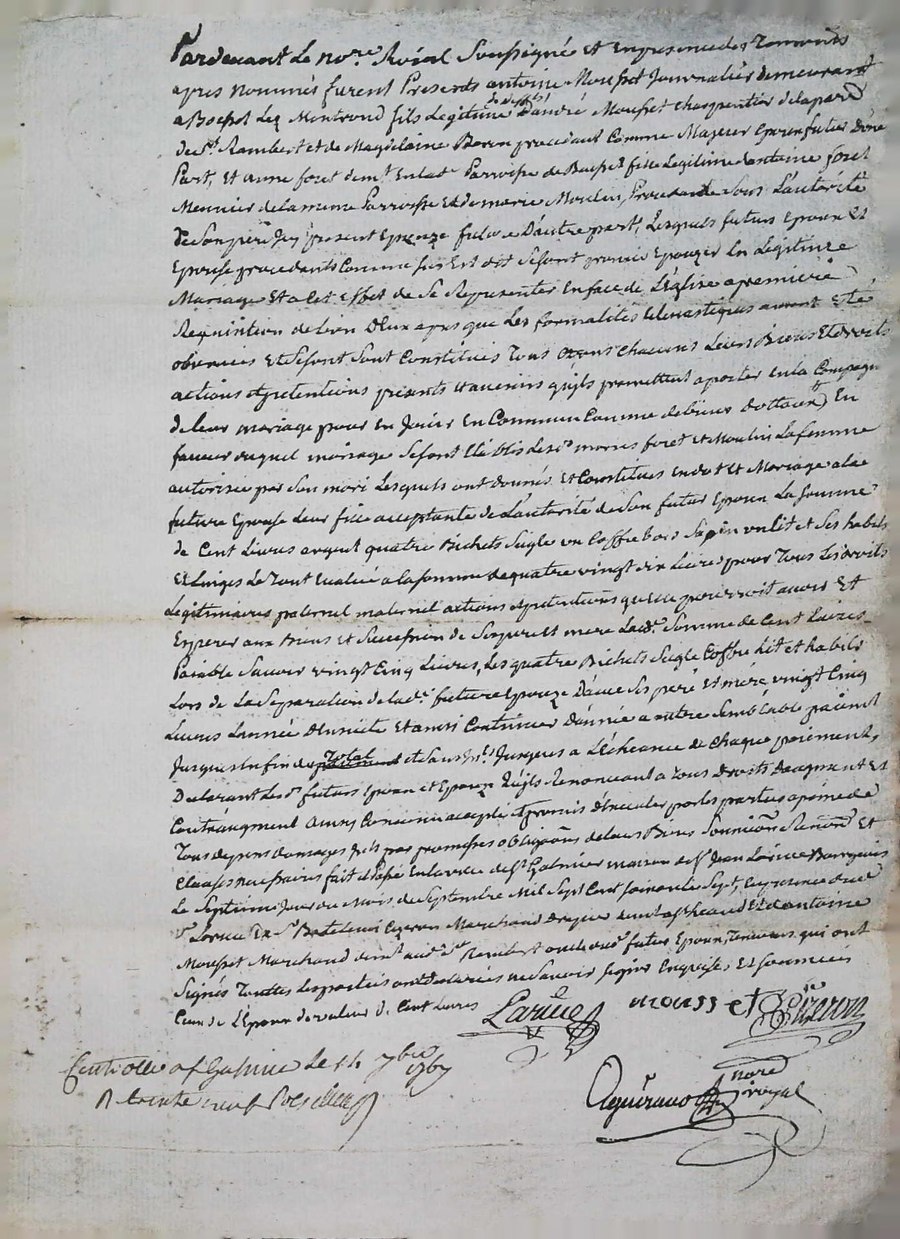 Pardevant Le no.re Roial Soussigné et En presence des Temoins
apres nommés furent Presents antoine Mousset Journalier demeurant
a Boisset Les Montrond fils Legitime de deffts D'andré Mousset charpentier de la par.
de St. Rambert et de Magdelaine Beren procedant Comme Majeur Epoux futur D'une
Part, Et anne foret dem.t En lad.e Parroisse de Boisset fille Legitime d'antoine foret
Meunier de la meme Parroisse Et de marie Moulin, Procedante Sous L'autorité
De Son pere Icy present Epouze future D'autre part, Lesquels futurs Epoux Et
Epouse procedants Comme sus Est dit Se sont promis Epouzer En Legitime
Mariage Et a Cet Effet de Se Representer En face de L'Eglise a premiere
Requisition de L'un D'Eux apres que Les formalités auront Eté
observées Et Se sont Constitués Tous Chacuns Leurs Biens Et droits
actions et pretentions présents Et avenirs qu'ils promettent aporter En la Compagn
de Leur mariage pour En Jouir En Commun Comme de biens dottaux, En
faveur duquel mariage Se sont Etablis Les d. maries foret et Moulin La femme
autorisée par Son mari Lesquels ont donnés Et Constitués En dot et Mariage a la
future Epouse Leur fille acceptante de L'autorité de Son futur Epoux La Somme
de Cent Livres argent quatre Bichets Segle un Coffre bois Sapin un lit et Ses habits
Et Linges Le Tout Evalué a la Somme de quatre vingt dix Livres pour Tous Les droits
Legitimaires paternel maternel actions et pretentions qu'elle pourroit avoir Et
Esperer aux Biens et Succession de Ses pere Et mere Lad.e Somme de Cent Livres
Paiable Sauoir vingt Cinq Livres, Les quatre Bichets Segle Coffre Lit et habits
Lors de La Separation de lad.e future Epouze D'avec Ses pere Et mere, vingt Cinq
Livres L'année Ensuite Et ainsi Continuer D'année a autre Semblable paiement
Jusques En fin de total et Sans Jusques a L'Echeance de Chaque paiement,
Declarant Les d. futurs Epoux et Epouze qu'ils Renoncent a Tous Droits D'augment Et
Contraugment ainsy Convenu accepté et promis D'Executer par les parties a peine de
Tous depens domages par promesses obligaons de leurs Biens Soumissions Renons Et
Clauses fait et Passé En la ville de St. Galmier maison de Sr. Jean Larüe Bourgeois
Le Septieme Jour du Mois de Septembre Mil Sept Cent Soixante Sept, En presence dud
Sr. Larüe de Sr. Marchand dem.t aud. St. heaud Et d'antoine
Mousset Marchand dem.t aud. St. Rambert oncle dud. futur Epoux, Temoins qui ont
Signés Touttes Les parties ont declarées ne Savoir Signer Enquises Et Sommées
L'Epoux de valeur de Cent Livres
Larüe mousset
nore
royal
Controllé a St Galmier Le 14 7bre 1767
R trente neuf